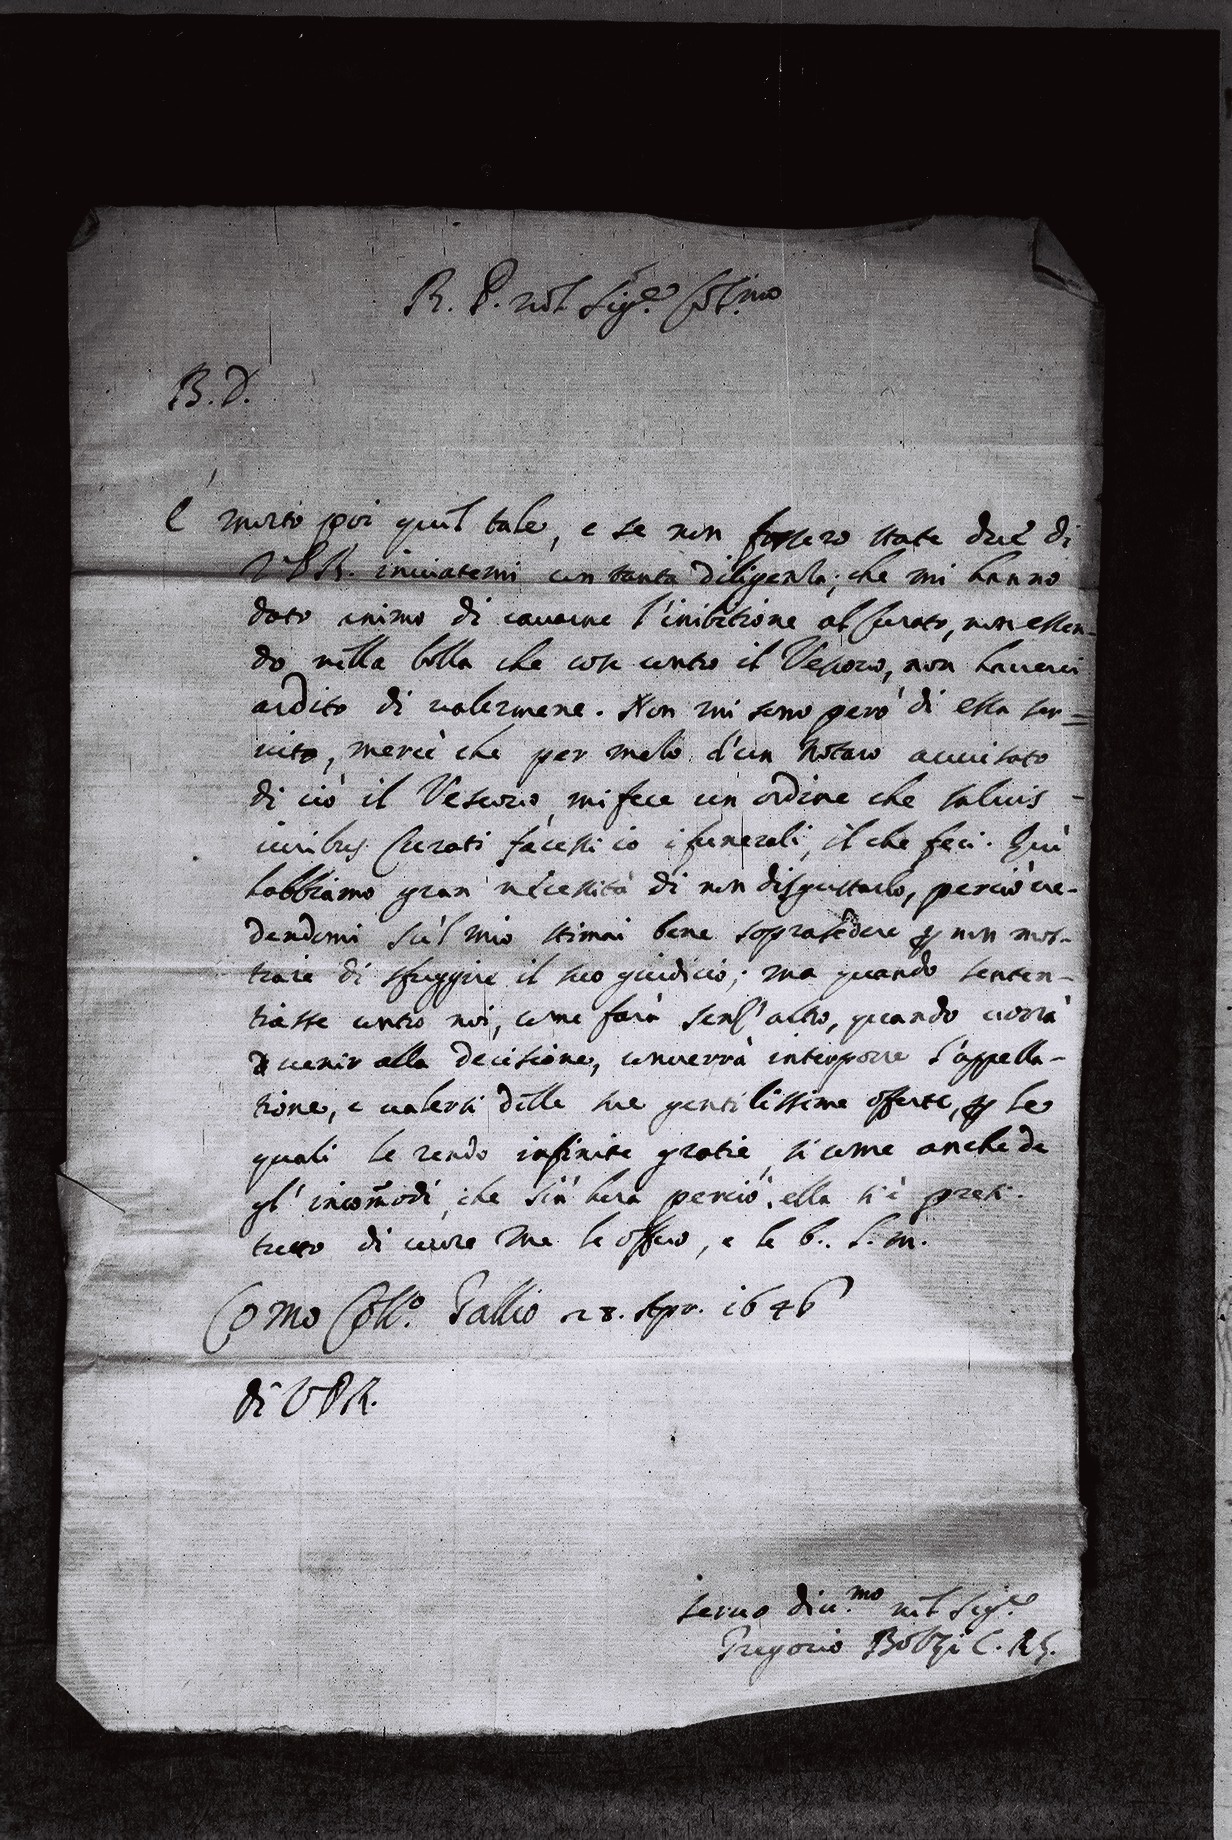 R. P. nel Sig.re Col.mo
B. D.
É morto poi quel tale, e se non fossero state due di
V P R. inviatemi con tanta diligenza, che mi hanno
dato animo di cavarne l'inibitione al Curato, non essen-
do nella bolla che cose contro il Vescovo, non haverei
ardito di valermene. Non mi sono però di essa ser=
vito, mercè che per mezo d'un Notaro avvisato
di ciò il Vescovo mi fece un ordine che salvis
iuribus Curati facessi io i funerali, il che feci. Quì
habbiamo gran necessità di non disgustarlo, perciò ve-
dendomi sù'l mio stimai bene soprasedere per non mos-
trare di sfuggire il suo giudicio; ma quando senten-
tiasse contro noi, come farà senz'altro, quando vorrà
venir alla decisione, converrà interporre l'appella-
tione, e valersi delle sue gentilissime offerte, per le
quali le rendo infinite gratie, sì come anche de
gl' incom̃odi, che sin' hora perciò ella s'è presi.
tutto di cuore me le offero, e le b. s. m.
Como Coll.o Gallio 28. Apr. 1646
di V P R.
servo div.mo nel Sig.re
Gregorio C. R. S.